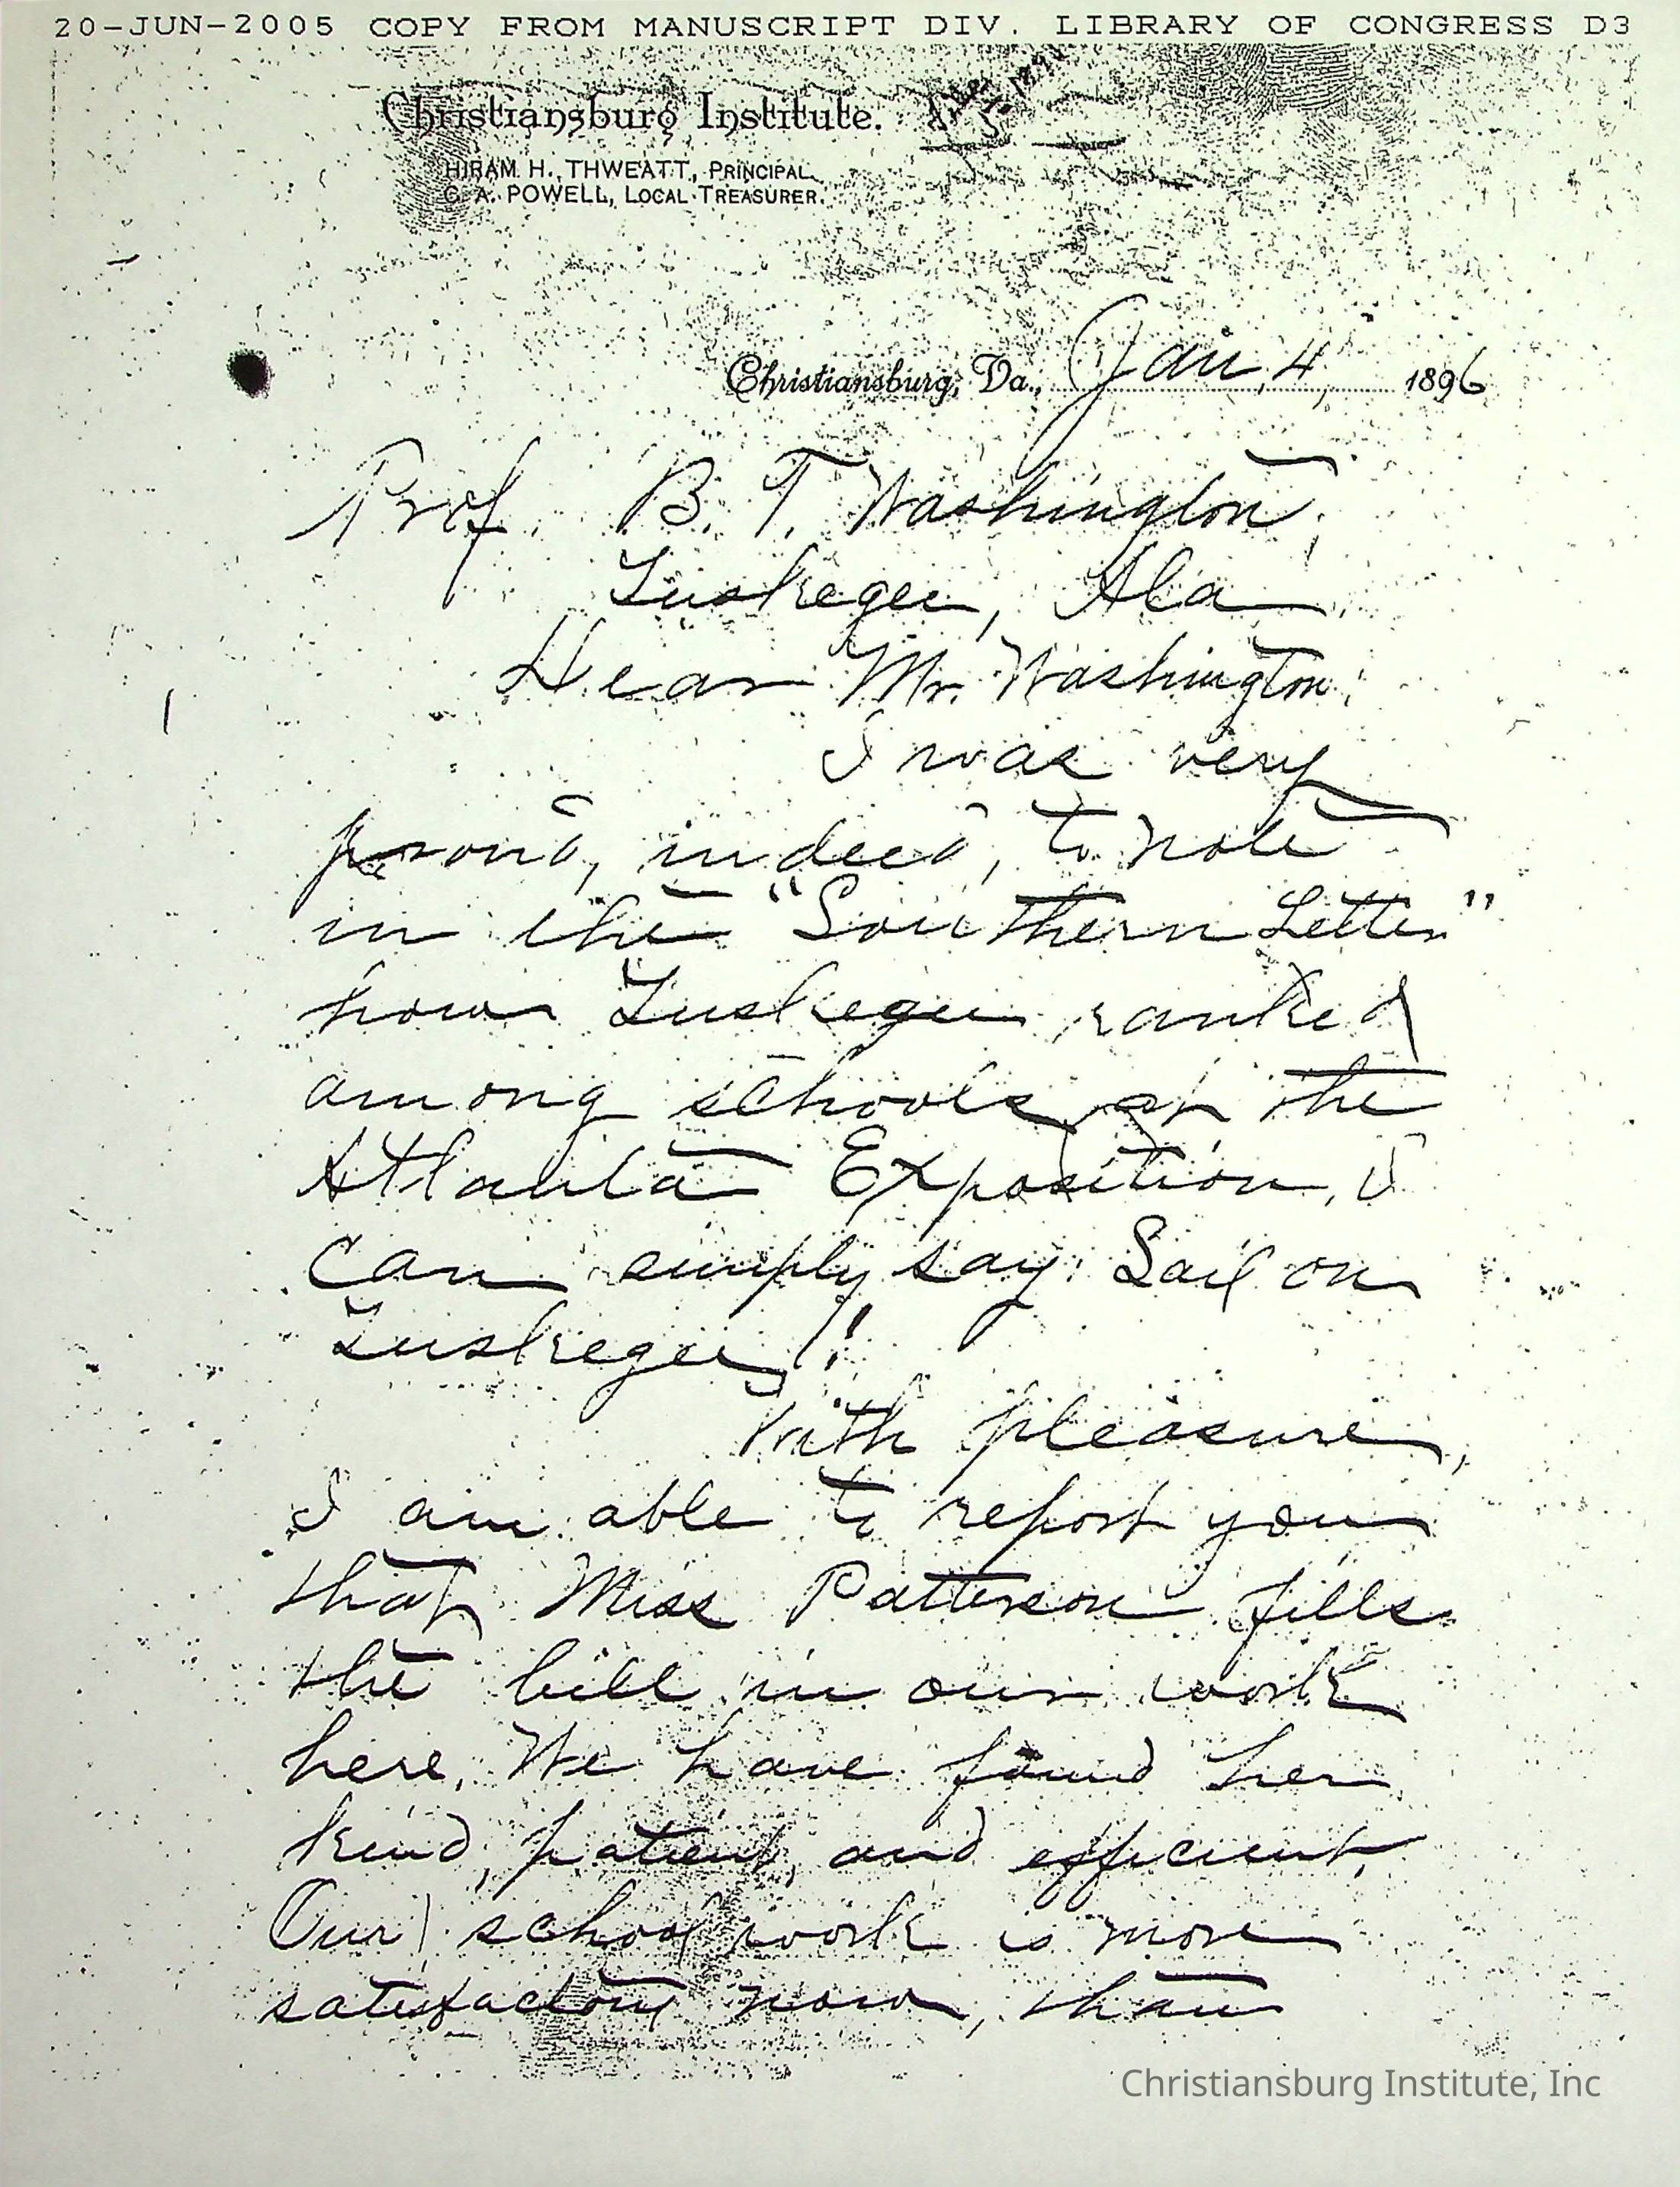 20-JUN-2005 COPY FROM MANUSCRIPT DIV. LIBRARY OF CONGRESS D3
Christiansburg Institute.
HIRAM H. THWEATT, PRINCIPAL.
C. A. POWELL, LOCAL TREASURER.
Christiansburg, Va., Jan, 4, 1896
Prof. B. T. Washington,
Tuskegee, Ala
Dear Mr. Washington,
I was very
proud, indeed, to note
in the "Southern Letter"
how Tuskegee ranked
among schools at the
Atlanta Exposition, I
can simply say: Sail on
Tuskegee!
With pleasure,
I am able to report you
that Miss Patterson fills
the bill in our work
here. We have found her
kind, patient, and efficient.
Our school work is more
satisfactory now, than
Christiansburg Institute, Inc